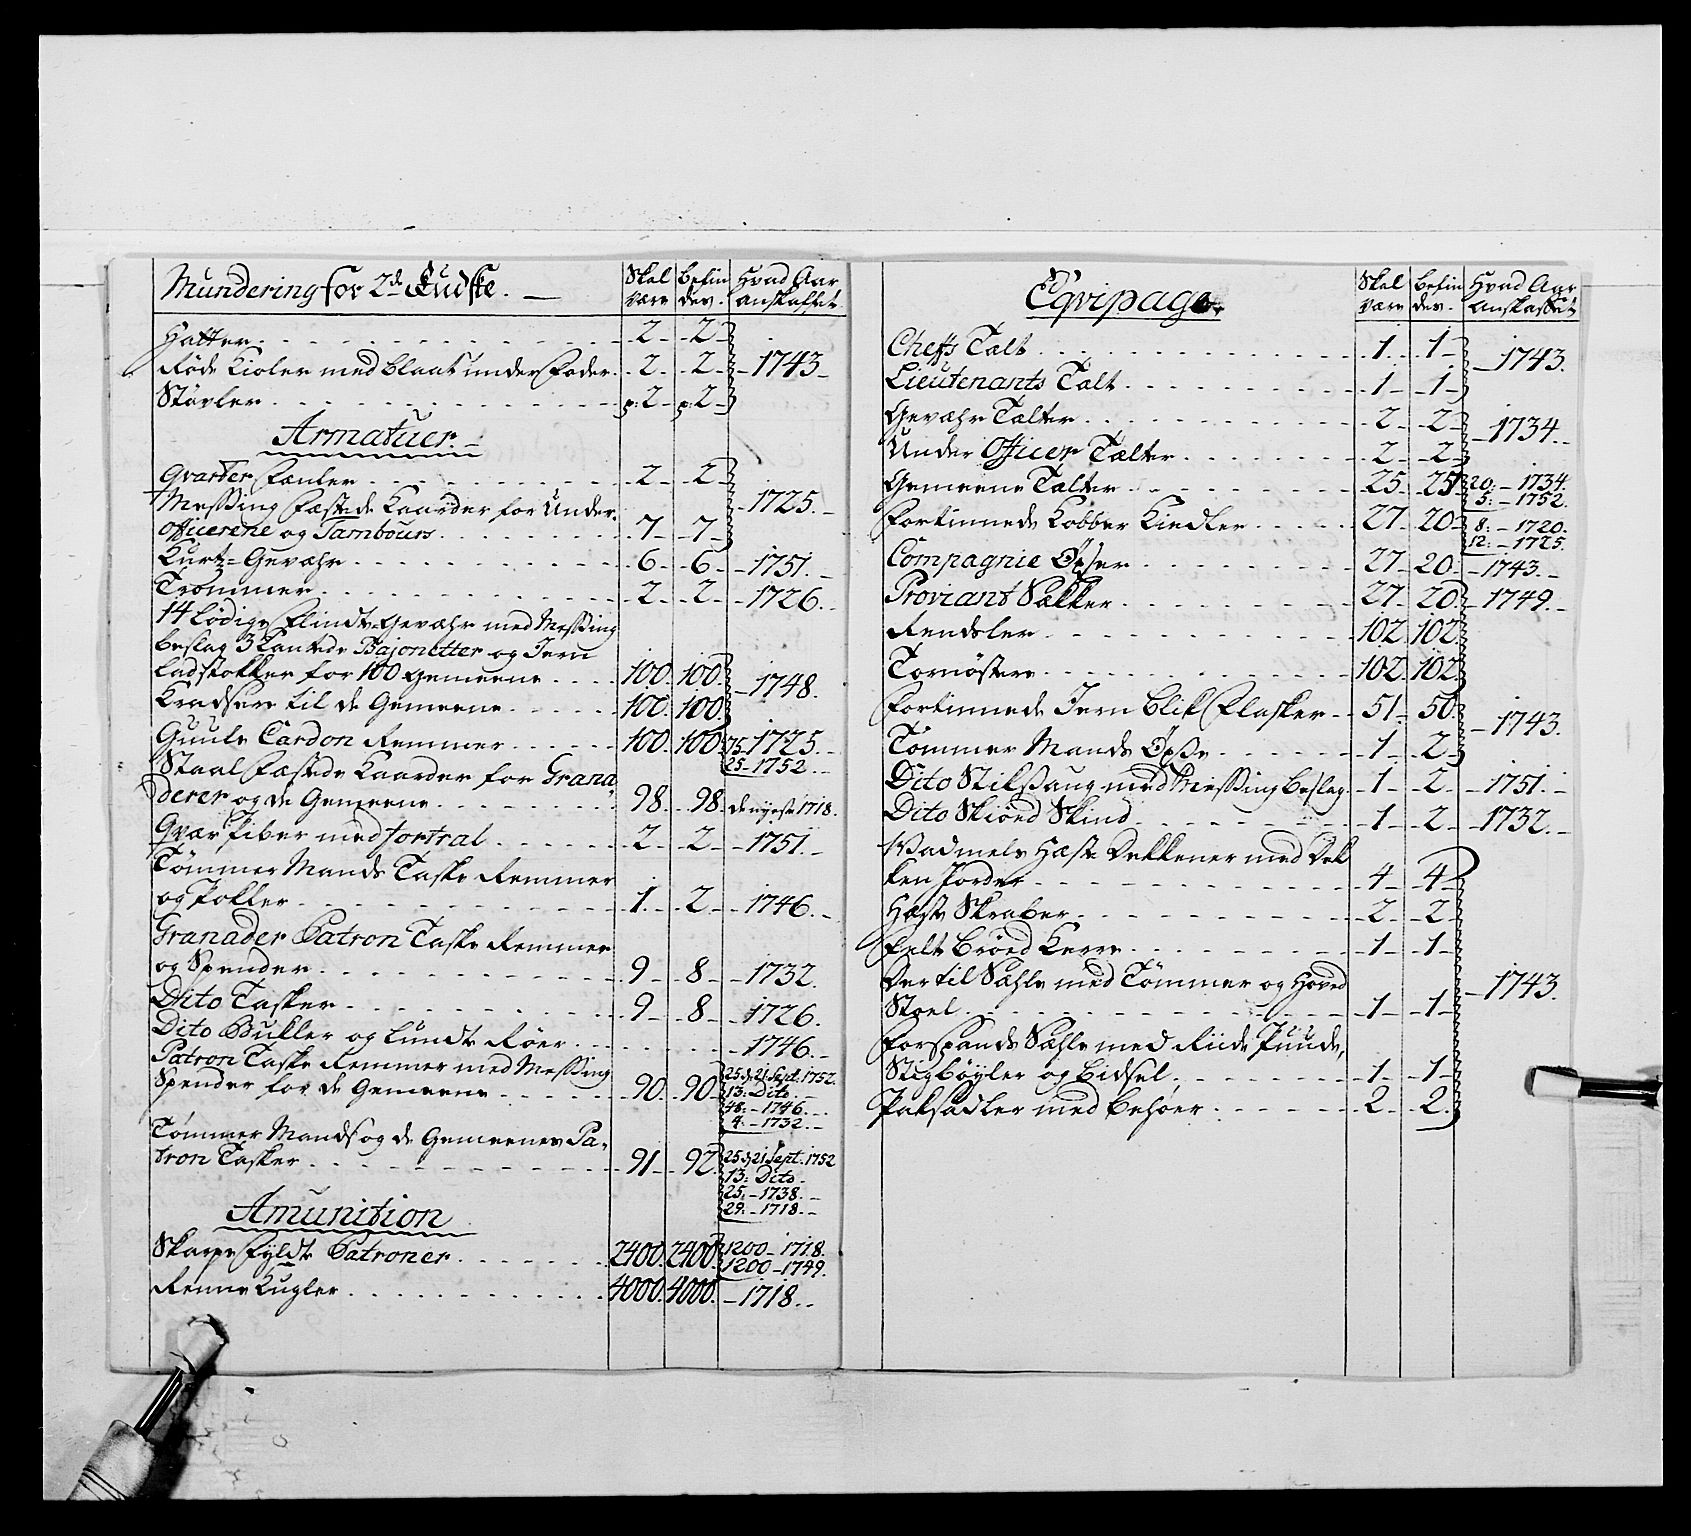 Mundering for 2de Kudske. — Skal være Befindes. Hvad Aar anskaffet.
Hatter. 2 2
Røde Kioler med blaat under Foder. 2 2 1743
Støvler p: 2 p: 2
Armatuer.
Qvarter Fanler 2 2
Messing Fæstede Kaarder for Under
Officerene og Tambours 7 7 1725.
Kurtz-Gevæhr 6 6 1751.
Trommer 2 2 1726.
14 Lødige Flindt-Gevæhr med Messing
beslag 3 Kantede Bajonetter og Jern
Ladstokker for 100 Gemeene 100. 100. 1748.
Kradsere til de Gemeene 100. 100.
Guule Cardon Remmer 100. 100. 75-1725.
25-1752.
Staal Fæstede Kaarder for Grana
derer og de Gemeene 98. 98. de nyeste 1718.
Qvær Piber med fortral 2 2 1751.
Tømmer Mands Taske Remmer
og Kobler 1 2 1746.
Granader Patron Taske Remmer
og Spender 9 8 1732.
Dito Tasker 9 8 1726.
Dito Bukler og Lundte Røer 1746.
Patron Taske Remmer med Messing
Spender for de Gemeene 90. 90. 25 d 21 Sept. 1752.
13: Dito
48: 1746.
4: 1732.
Tømmer Mands og de Gemeenes Pa-
tron Tasker 91 92 25 d 21 Sept. 1752
13: Dito
25: 1738.
29: 1718.
Amunition
Skarpe Fyldte Patroner 2400. 2400. 1200-1718.
1200-1749.
Renne Kugler 4000. 4000. 1718.
Eqvipage. Skal være Befindes. Hvad Aar anskaffet
Chefs Talt 1 1 1743.
Lieutenants Talt 1 1
Gevæhr Talter 2 2 1734.
Under Officer Talter 2 2
Gemeene Talter 25 25 20: 1734.
5: 1752.
Fortinnede Kobber Kiedler 27 20 8: 1720.
12: 1725.
Compagnie Øxser 27 20 1743.
Proviant Sækker 27 20 1749.
Rendsler 102 102
Tornøstere 102 102
Fortinnede Jern blik Flasker 51 50. 1743.
Tømmer Mands Øxse 1 2
Dito Stiksaug med Messing beslag 1 2 1751.
Dito Skiøed Skind 1 2 1732.
Vadmels Hæste Dekkener med Dek
ken Jorder 4 4
Hæste Skraber 2 2
Felt brøed Kerre 1 1
Der til Sahle med Tømmer og Hoved
Stoel 1 1 1743.
Forspands Sahle med Riide Puude,
Stigbøyler og bidsel 1 1
Paksadler med behøer 2 2